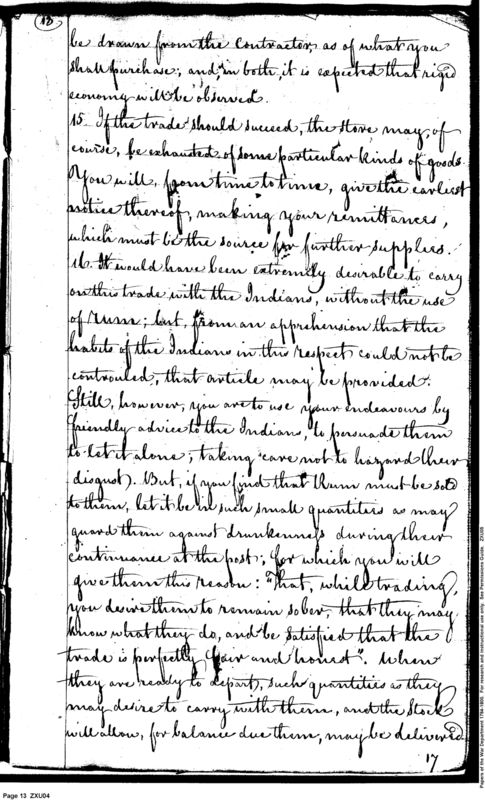 13
be drawn from the Contractor, as of what you
shall purchase; and, in both, it is expected that rigid
economy will be observed.
15. If the trade should succeed, the store may, of
course, be exhausted of some particular kinds of goods.
You will, from time to time, give the earliest
notice thereof, making your remittances,
which must be the source for further supplies.
16. It would have been extremely desirable to carry
on this trade with the Indians, without the use
of rum; but, from an apprehension that the
habits of the Indians in this respect could not be
controuled, that article may be provided.
Still, however, you are to use your endeavours by
friendly advice to the Indians, to persuade them
to let it alone; taking care not to hazard their
disgust. But, if you find that Rum must be sold
to them, let it be in such small quantities as may
guard them against drunkenness during their
continuance at the post; for which you will
give them this reason: "That, while trading,
you desire them to remain sober, that they may
know what they do, and be satisfied that the
trade is perfectly fair and honest". When
they are ready to depart, such quantities as they
may desire to carry with them, and the Stock
will allow, for balance due them, may be delivered.
17
Page 13 ZXU04
Papers of the War Department 1784-1800. For research and instructional use only. See Permissions Guide ZXU08